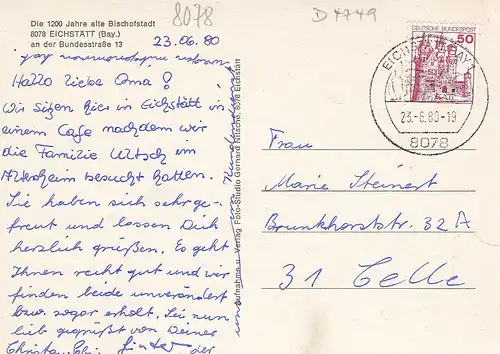 Die 1200 Jahre alte Bischofstadt
8078 EICHSTÄTT (Bay.)
an der Bundesstraße 13
8078
D 4749
23.06.80
Hallo liebe Oma!
Wir sitzen hier in Eichstätt in
einem Cafe nachdem wir
die Familie Utsch im
Altersheim besucht hatten.
Sie haben sich sehr ge-
freut und lassen Dich
herzlich grüßen. Es geht
Ihnen recht gut und wir
finden beide unverändert
bzw. sogar erholt. Sei nun
lieb gegrüßt von Deiner
Günter
der
Aufnahme u. Verlag Foto-Studio Gerhard Nitsche, 8078 Eichstätt
DEUTSCHE BUNDESPOST
50
EICHSTÄTT, BAY 1
23.-6.80-19
8078
Frau
Marie Steinert
Brunkhorststr. 32 A
31 Celle